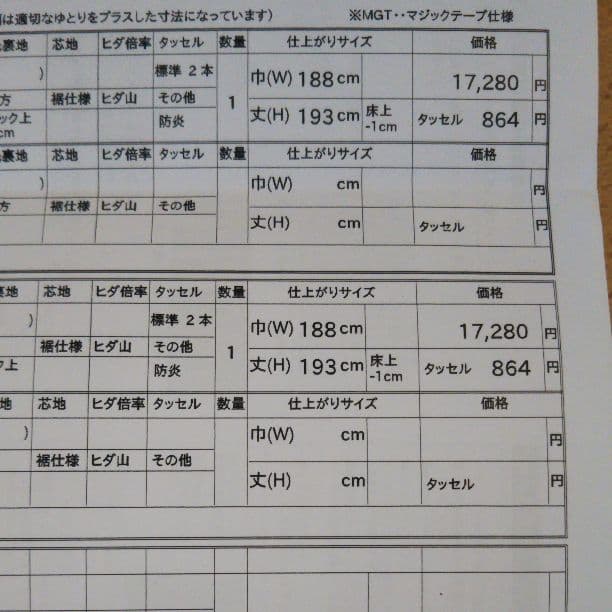 は適切なゆとりをプラスした寸法になっています) ※MGT‥マジックテープ仕様
裏地 芯地 ヒダ倍率 タッセル 数量 仕上がりサイズ 価格
) 標準 2本 1 巾(W) 188cm 17,280 円
方 裾仕様 ヒダ山 その他
ック上 防炎 丈(H) 193cm 床上 タッセル 864 円
cm -1cm
裏地 芯地 ヒダ倍率 タッセル 数量 仕上がりサイズ 価格
) 巾(W) cm 円
方 裾仕様 ヒダ山 その他
丈(H) cm タッセル 円
裏地 芯地 ヒダ倍率 タッセル 数量 仕上がりサイズ 価格
) 標準 2本 1 巾(W) 188cm 17,280 円
裾仕様 ヒダ山 その他
ク上 防炎 丈(H) 193cm 床上 タッセル 864 円
-1cm
地 芯地 ヒダ倍率 タッセル 数量 仕上がりサイズ 価格
) 巾(W) cm 円
裾仕様 ヒダ山 その他
丈(H) cm タッセル 円